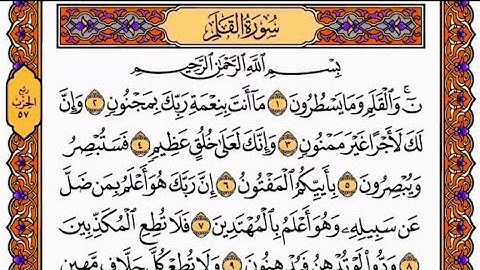 سُورَةُ القَلَمِ
بِسْمِ اللَّهِ الرَّحْمَٰنِ الرَّحِيمِ
نٓ ۚ وَالْقَلَمِ وَمَا يَسْطُرُونَ ١ مَا أَنتَ بِنِعْمَةِ رَبِّكَ بِمَجْنُونٍ ٢ وَإِنَّ
لَكَ لَأَجْرًا غَيْرَ مَمْنُونٍ ٣ وَإِنَّكَ لَعَلَىٰ خُلُقٍ عَظِيمٍ ٤ فَسَتُبْصِرُ
وَيُبْصِرُونَ ٥ بِأَييِّكُمُ الْمَفْتُونُ ٦ إِنَّ رَبَّكَ هُوَ أَعْلَمُ بِمَن ضَلَّ
عَن سَبِيلِهِ وَهُوَ أَعْلَمُ بِالْمُهْتَدِينَ ٧ فَلَا تُطِعِ الْمُكَذِّبِينَ
٨ وَدُّوا لَوْ تُدْهِنُ فَيُدْهِنُونَ ٩ وَلَا تُطِعْ كُلَّ حَلَّافٍ مَّهِينٍ
ربع
الحزب
٥٧